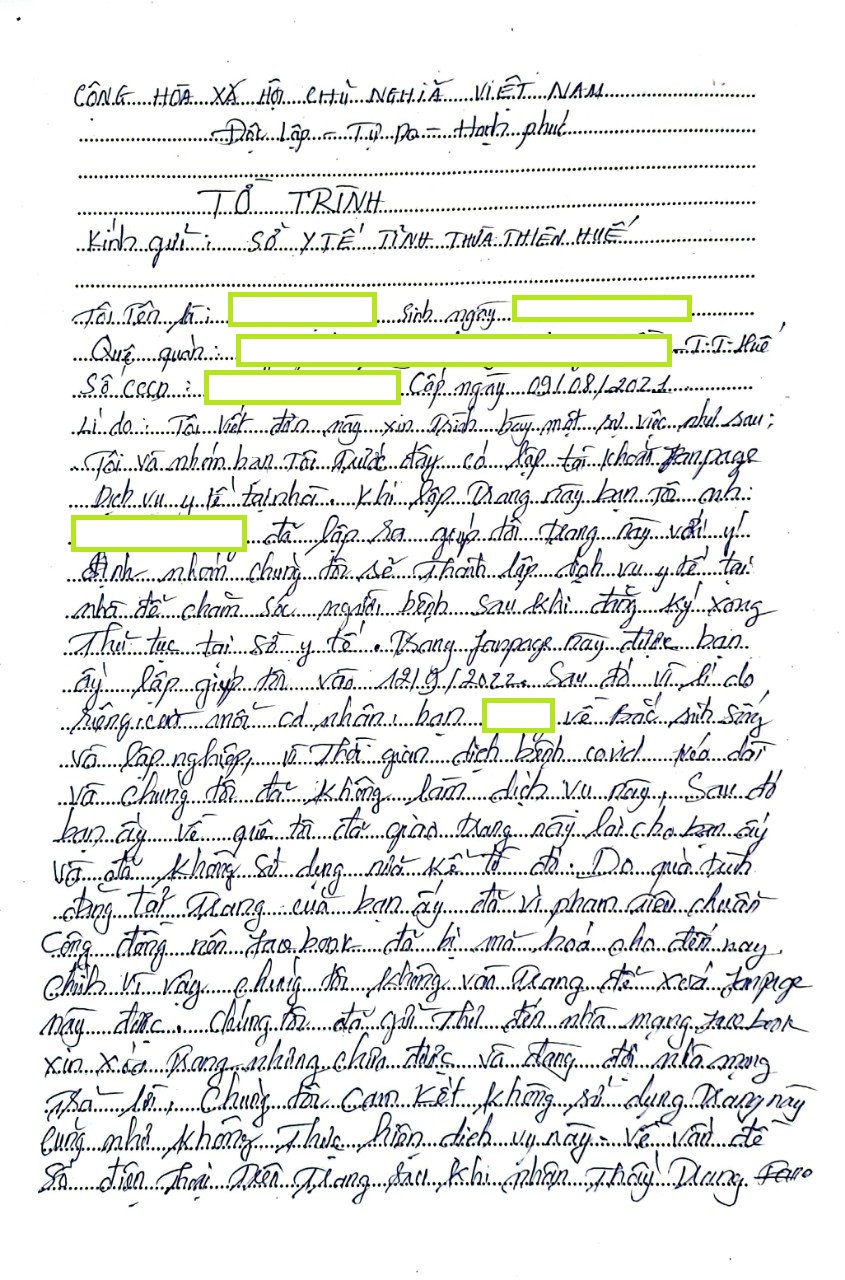 CỘNG HÒA XÃ HỘI CHỦ NGHĨA VIỆT NAM
Độc lập - Tự Do - Hạnh phúc
TỜ TRÌNH
Kính gửi: SỞ Y TẾ TỈNH THỪA THIÊN HUẾ
Tôi Tên là: Sinh ngày
Quê quán: T.T-Huế
Số CCCD: Cấp ngày 09/08/2021
Lí do: Tôi viết đơn này xin trình bày một sự việc như sau:
Tôi và nhóm bạn Tôi Trước đây có lập tài khoản fanpage
Dịch vụ y tế tại nhà. Khi lập Trang này bạn Tôi
đã lập ra giúp tôi trang này với ý
định nhóm chúng tôi sẽ Thành lập dịch vụ y tế tại
nhà để chăm sóc người bệnh sau khi đăng ký xong
Thủ tục tại sở y tế. Trang fanpage này được bạn
ấy lập giúp tôi vào 12/9/2022. Sau đó vì lí do
riêng của mỗi cá nhân, bạn về Bắc sinh sống
và lập nghiệp, vì Thời gian dịch bệnh covid kéo dài
và chúng tôi đã không làm dịch vụ này, Sau đó
bạn ấy về quê tôi đã giao trang này lại cho bạn ấy
và đã không sử dụng nữa kể từ đó. Do quá trình
đăng tải Trang của bạn ấy đã vi phạm tiêu chuẩn
Cộng đồng nên facebook đã bị mã hoá cho đến nay
chính vì vậy chúng tôi không vào Trang để xoá fanpage
này được. Chúng tôi đã gửi Thư đến nhà mạng facebook
xin xóa Trang nhưng chưa được và đang đợi nhà mạng
Trả lời, Chúng tôi Cam kết không sử dụng Trang này
cũng như không Thực hiện dịch vụ này. Về vấn đề
Số điện Thoại Trên Trang sau khi nhận Thấy Trang